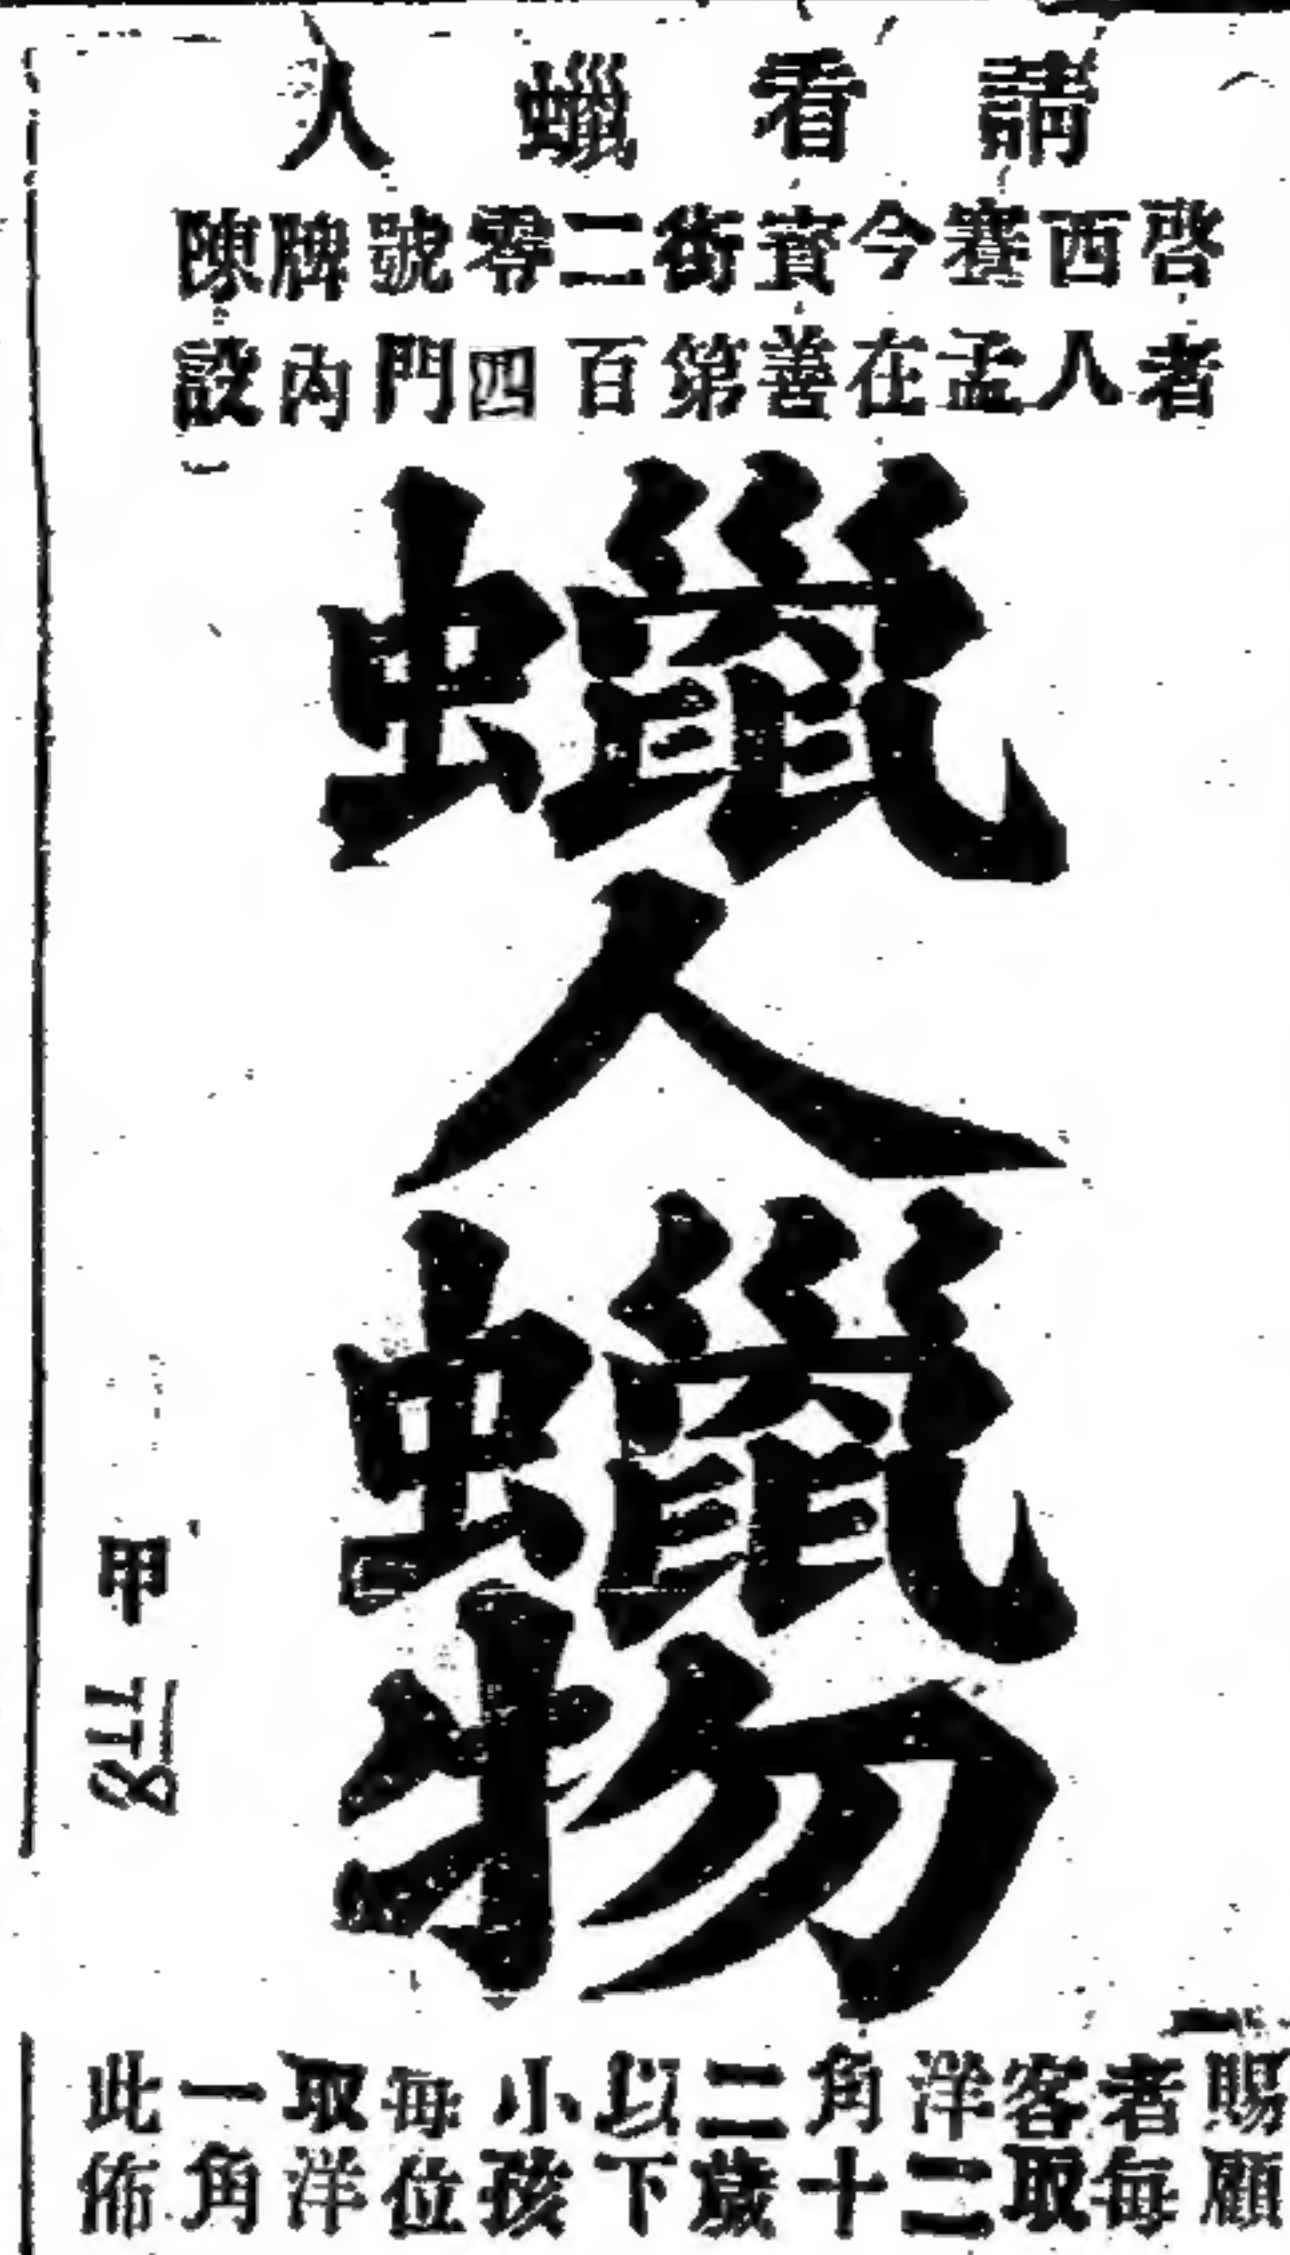 請看蠟人
啓者
西人
賽孟
今在
寳善
街第
二百
零四
號門
牌內
陳設
蠟人蠟物
賜顧
者每
客取
洋二
角十
二歲
以下
小孩
每位
取洋
一角
此佈
甲